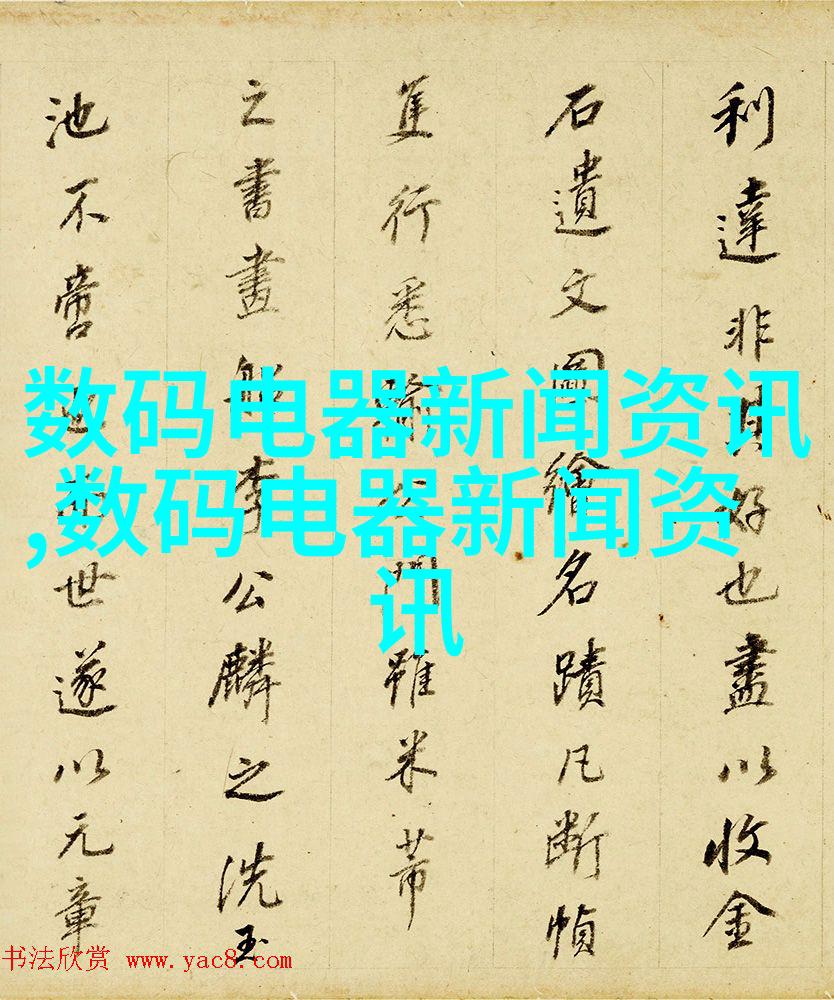 利達非其好也盡以收金
石遺文圖繪名蹟凡斷幀
隻行悉門雖米芾
之書畫船李公麟之洗玉
池不啻過世遂以元章
数码电器新闻资讯
,数码电器新闻资
讯
书法欣赏 www.yac8.com